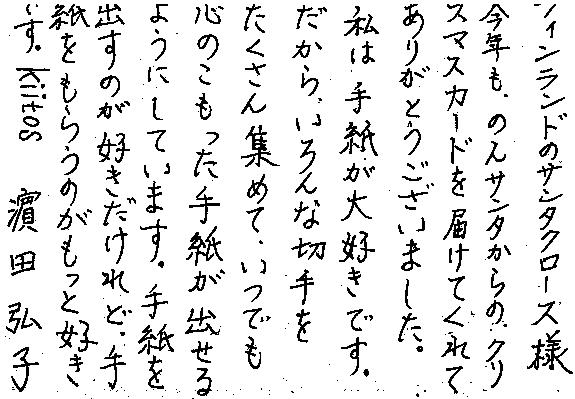 フィンランドのサンタクローズ様
今年も、のんサンタからの、クリ
スマスカードを届けてくれて
ありがとうございました。
私は手紙が大好きです。
だから、いろんな切手を
たくさん集めて、いつでも
心のこもった手紙が出せる
ようにしています。手紙を
出すのが好きだけれど、手
紙をもらうのがもっと好き
です。kiitos 濵田弘子